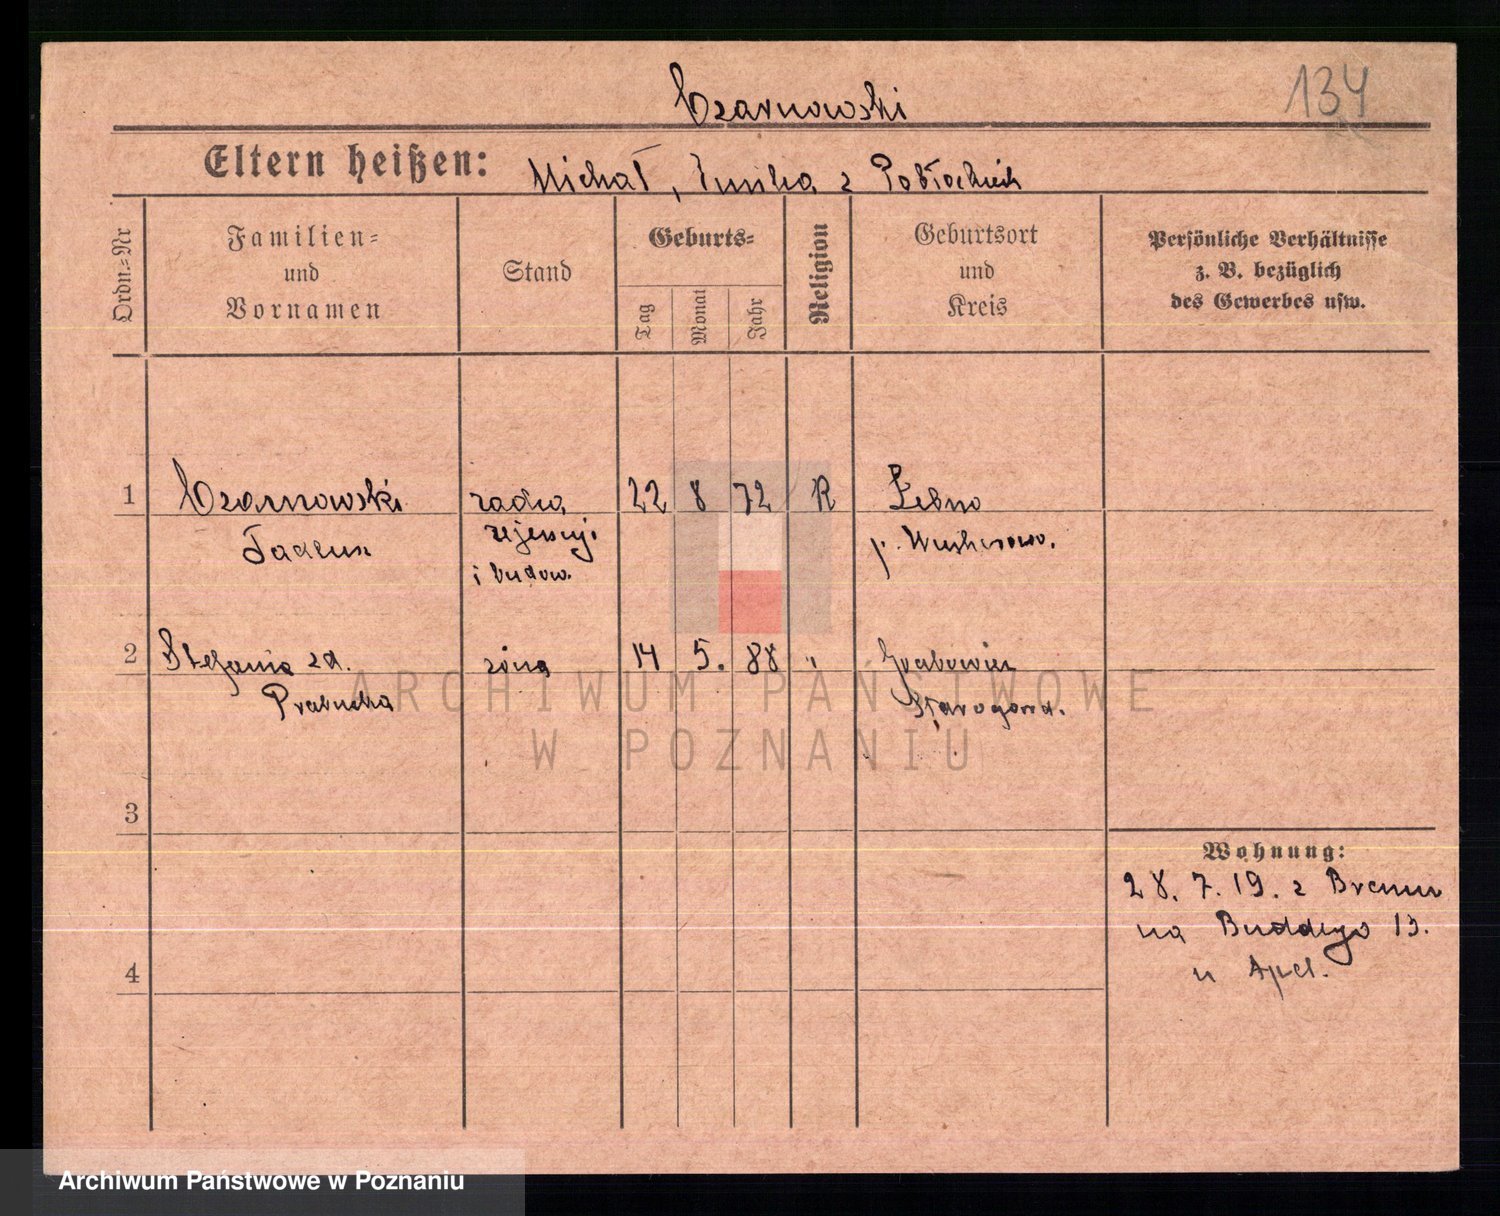 134
Czarnowski
Eltern heißen: Michał, Emilia z Pobłockich
Ordn.=Nr
Familien=
und
Vornamen
Stand
Geburts=
Tag
Monat
Jahr
Religion
Geburtsort
und
Kreis
Persönliche Verhältnisse
z. B. bezüglich
des Gewerbes usw.
1 Czarnowski radca 22 8 72 R
Tadeusz rejencyj.
i budow.
p.
2 Stefania zd. żona 14 5. 88 " Grabowiec
Prabucka Starogard.
ARCHIWUM PAŃSTWOWE
W POZNANIU
3
4
Wohnung:
28. 7. 19. z Bremen
na Buddego 13.
u Apel.
Archiwum Państwowe w Poznaniu